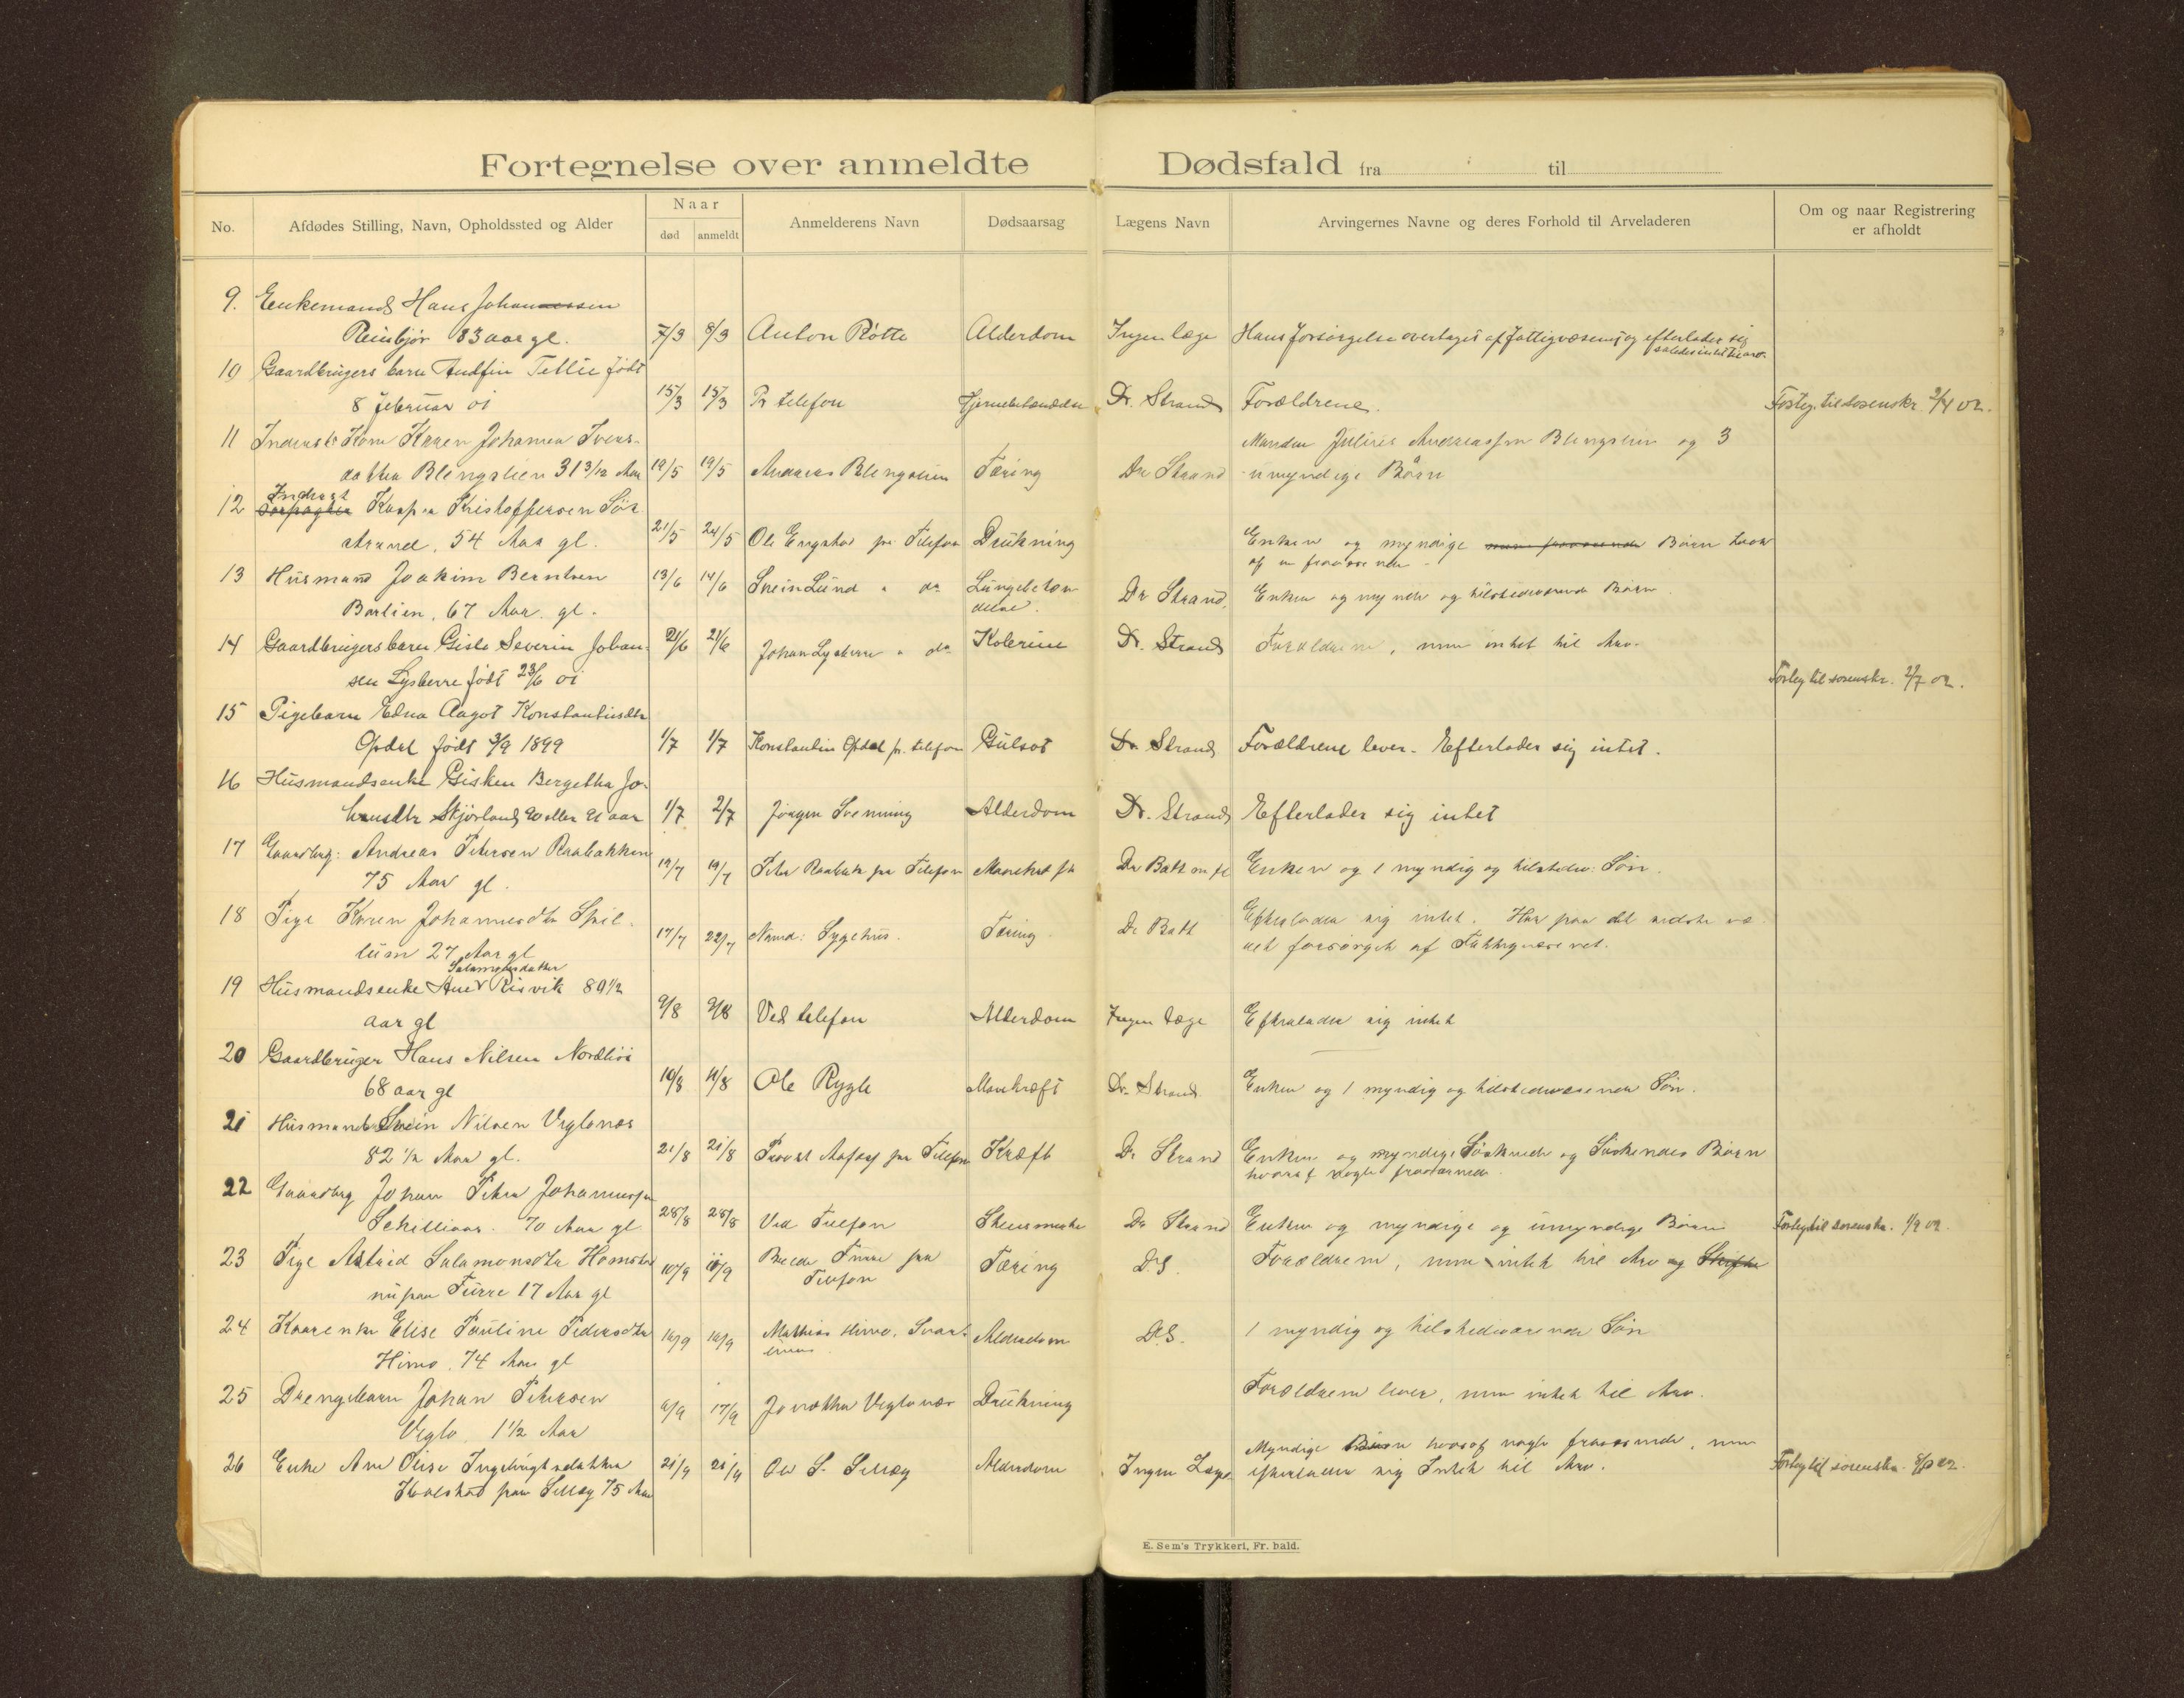 Fortegnelse over anmeldte Dødsfald fra til
No. Afdødes Stilling, Navn, Opholdssted og Alder Naar død anmeldt Anmelderens Navn Dødsaarsag Lægens Navn Arvingernes Navne og deres Forhold til Arveladeren Om og naar Registrering er afholdt
9. Enkemand Hans Johannessen
Reinbjør 83 aar gl. 7/3 8/3 Anton Røtte Alderdom Ingen læge Hans forsørgelse overtaget af fattigvæsenet og efterlader sig
saaledes intet til arv.
10 Gaardbrugers barn Andfin Tellie født
8 februar 01 15/3 15/3 Pr telefon Hjernebetændelse Dr. Strand Forældrene. Forteg. til sorenskr. 2/4 02.
11 Inderst Kone Karen Johanna Ivers-
datter Blengslien 31 3/12 Aar 19/5 19/5 Andreas Blengslien Tæring Dr Strand Manden Julius Andreassen Blengslien og 3
umyndige Børn
12 Inderst Kasper Kristoffersen Sør
strand, 54 Aar gl. 21/5 24/5 Ole Engstad pr Telefon Drukning Enken og myndige Børn hvor
af en fraværende
13 Husmand Joakim Berntsen 13/6 14/6 Svein Lund " do Lungebetæn
delse. Dr Strand. Enken og myndige og tilstedeværende Børn.
Barlien, 67 Aar gl.
14 Gaardbrugers barn Gisle Severin Johan- 21/6 21/6 Johan Lysberre " do Kolerine Dr. Strand Forældrene, men intet til Arv.
sen Lysberre født 23/6 01 Forteg til sorenskr. 2/7 02.
15 Pigebarn Edna Aagot Konstantinsdtr
Opdal født 3/9 1899 1/7 1/7 Konstantin Opdal pr. telefon Gulsot Dr Strand Forældrene lever. Efterlader sig intet.
16 Husmandsenke Gisken Bergetha Jo-
hansdtr Skjørland 90 eller 91 aar 1/7 2/7 Jørgen Svenning Alderdom Dr. Strand Efterlader sig intet
17 Gaardbrg: Andreas Petersen Raabakken
75 Aar gl. 19/7 19/7 Peter Raabak pr Telefon Mavekræft Dr Batt m fl Enken og 1 myndig og tilstedev: Søn.
18 Pige Karen Johannesdtr Spil-
lum 27 Aar gl 17/7 22/7 Namd: Sygehus. Tæring Dr Batt Efterlader sig intet. Har paa det sidste væ-
ret forsørget af Fattigvæsenet.
19 Husmandsenke Ane Salamonsdatter Risvik 89 1/2
aar gl 9/8 9/8 Ved telefon Alderdom Ingen læge Efterlader sig intet
20 Gaardbruger Hans Nilsen Nordlia
68 aar gl 10/8 11/8 Ole Rygh Mavekræft Dr. Strand Enken og 1 myndig og tilstedeværende Søn.
21 Husmand Svein Nilsen Vigtsnes
82 1/2 Aar gl. 21/8 21/8 pr Telefon Kræft Dr Strand Enken og myndige Søskende og Søskendes Børn
hvoraf nogle fraværende.
22 Gaardbrg Johan Peter Johannessen
70 Aar gl 28/8 28/8 Ved Telefon Dr Strand Enken og myndige og umyndige Børn Forteg til sorenskr. 1/9 02.
23 Pige Astrid Salamonsdtr Homstad
nu paa Furre 17 Aar gl 10/9 11/9 Furre pr
Telefon Tæring D.S. Forældrene, men intet til Arv
24 Kaarenke Elise Pauline Pedersdtr
Himo, 74 Aar gl 16/9 16/9 Mathias Himo, Alderdom D.S. 1 myndig og tilstedeværende Søn
25 Drengebarn Johan Petersen
1 1/2 Aar 17/9 Jonathan Drukning Forældrene lever, men intet til Arv.
26 Enke Ane Olise Ingebrigtsdatter
Kolstad paa Seltøy 75 Aar 21/9 21/9 Ole S. Alderdom Ingen Læge Myndige Børn hvoraf nogle fraværende, men
efterlader sig Intet til Arv. Forteg til sorenskr.
E. Sem's Trykkeri, Fr. hald.